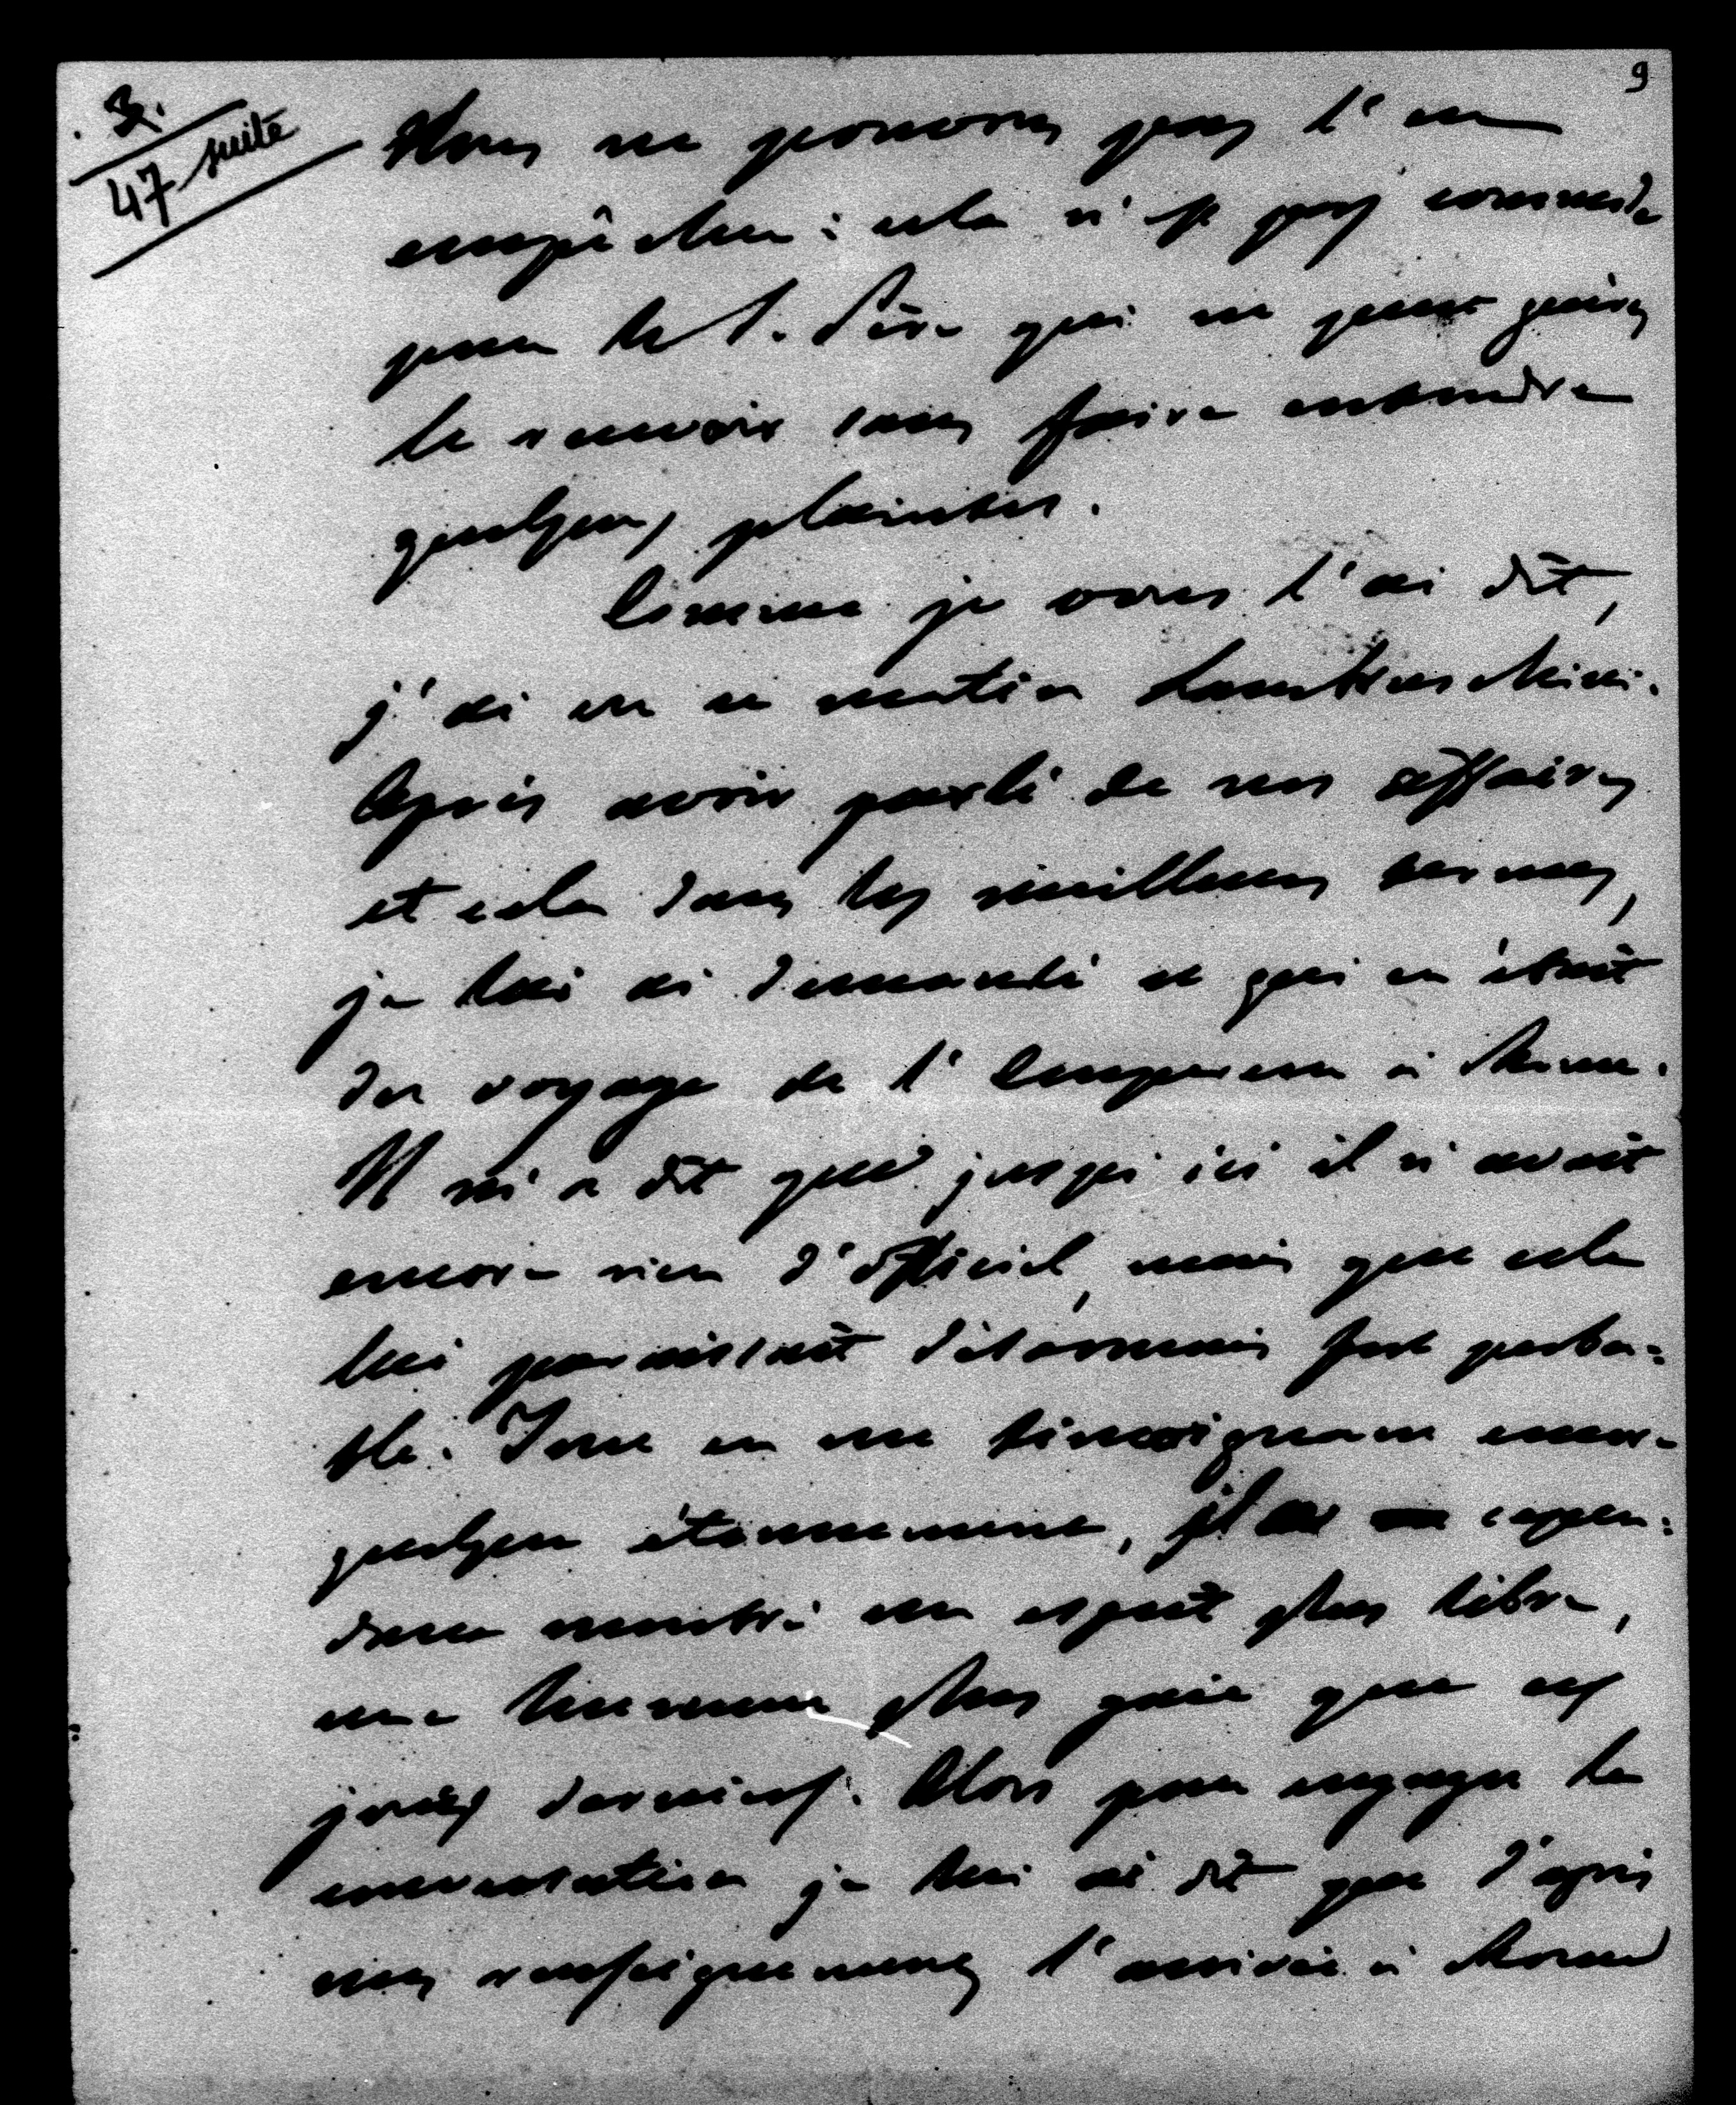 9
3.
47 suite
Nous ne pouvons pas l'en
empêcher : cela n'est pas commode
pour le S. Père qui ne peut guères
le recevoir sans faire entendre
quelques plaintes.
Comme je vous l'ai dit,
j'ai vu ce matin Lambruschini.
Après avoir parlé de nos affaires
et cela dans les meilleurs termes,
je lui ai demandé ce qui en était
du voyage de l'Empereur à Rome.
Il m'a dit que jusqu'ici il n'avait
encore rien d'officiel, mais que cela
lui paraissait désormais fort proba=
ble. Tout en me témoignant encore
quelque étonnement, il a cepen=
dant montré un esprit plus libre,
une humeur plus gaie que ces
jours derniers. Alors pour engager la
conversation je lui ai dit que d'après
mes renseignements l'arrivée à Rome